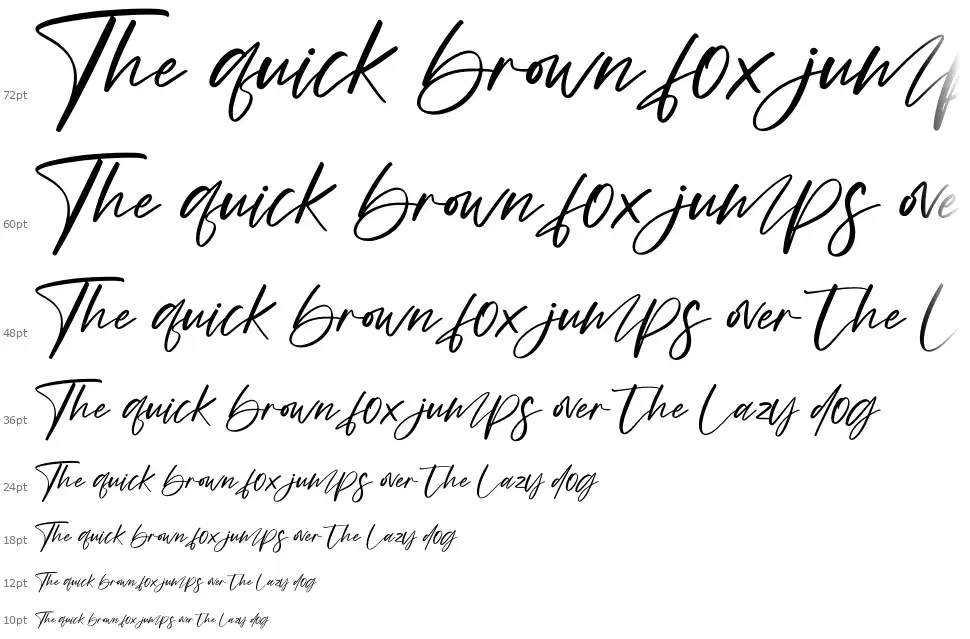 72pt The quick brown fox jump
60pt The quick brown fox jumps ove
48pt The quick brown fox jumps over the L
36pt The quick brown fox jumps over the Lazy dog
24pt The quick brown fox jumps over the Lazy dog
18pt The quick brown fox jumps over the Lazy dog
12pt The quick brown fox jumps over the Lazy dog
10pt The quick brown fox jumps over the Lazy dog